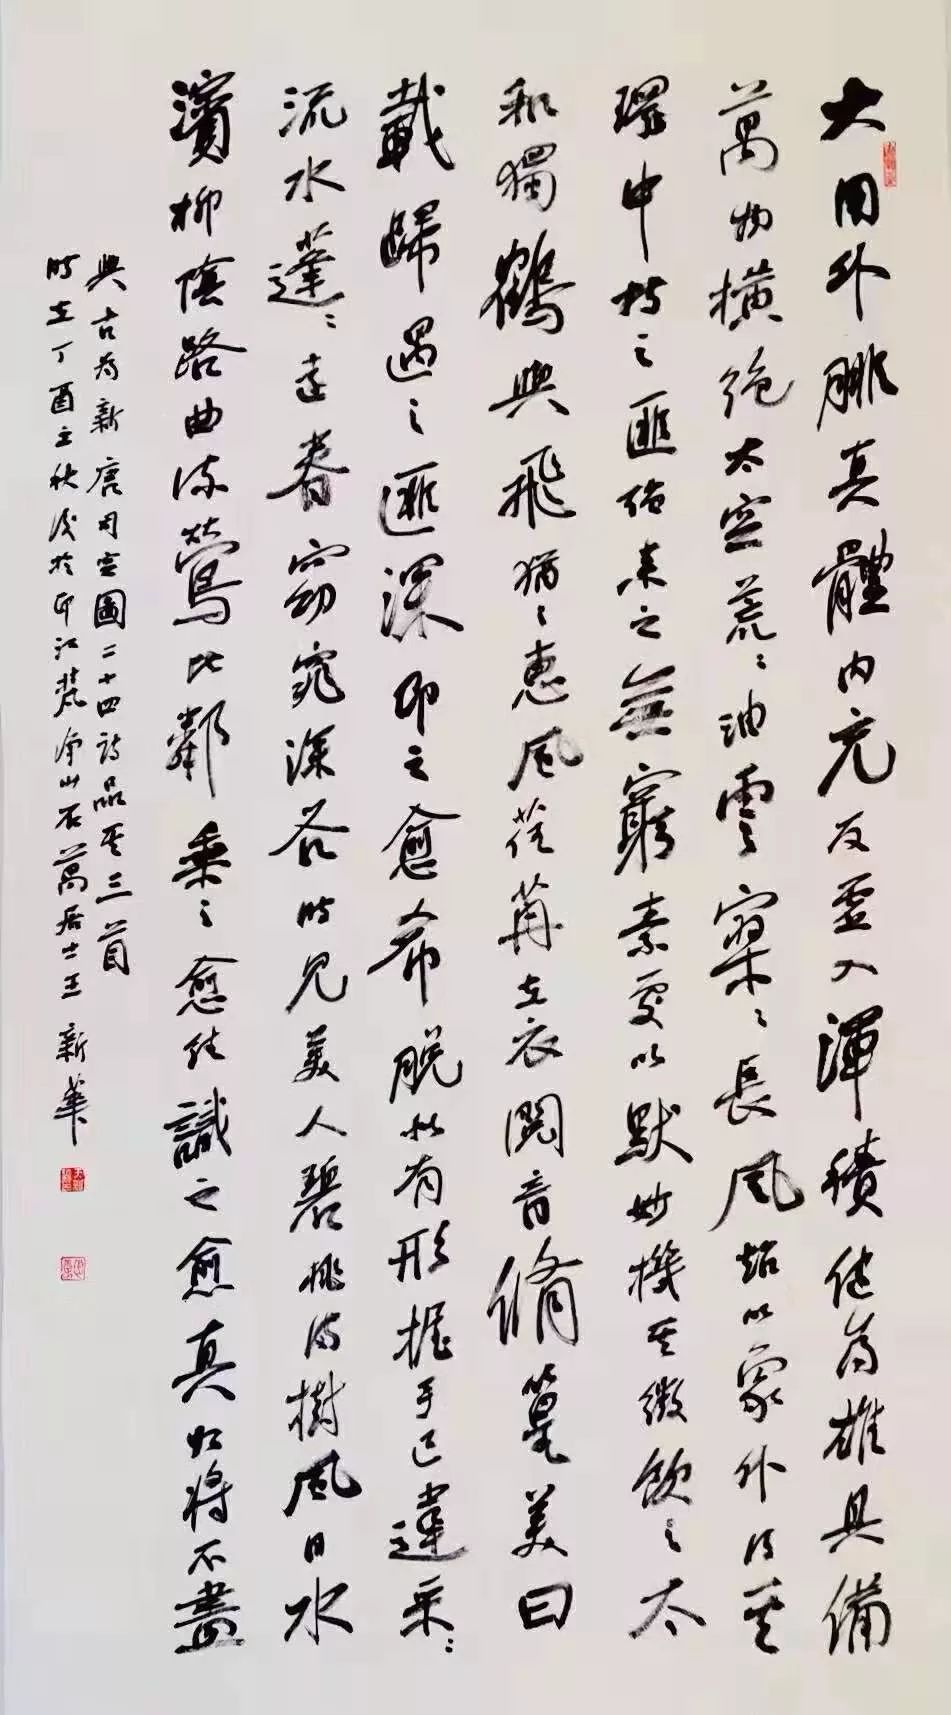 大用外腓真體內充反虛入渾積健為雄具備
萬物橫絕太空荒〻油雲寥〻長風超以象外得其
環中持之匪強來之無窮素處以默妙機其微飲之太
和獨鶴與飛猶之惠風荏苒在衣閱音脩篁美曰
載歸遇之匪深即之愈希脫似有形握手已違采〻
流水蓬〻遠春窈窕深谷時見美人碧桃滿樹風日水
濱柳陰路曲流鶯比鄰乘之愈往識之愈真如將不盡
與古為新 唐司空圖二十四詩品其三首
時在丁酉立秋後於印江梵淨山石萬居士王新華